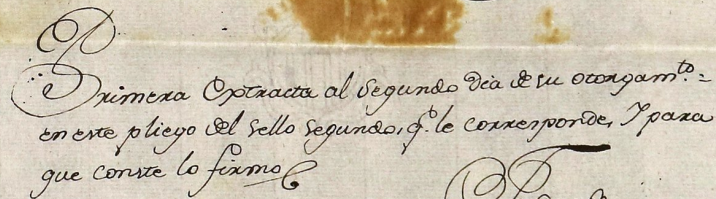 Primera Extracta al segundo dia de su otorgam.to =
en este pliego del sello segundo, q.e le corresponde, Y para
que conste lo firmo